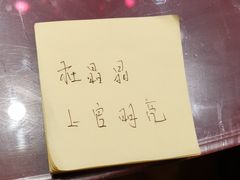 在晶晶
上官明亮